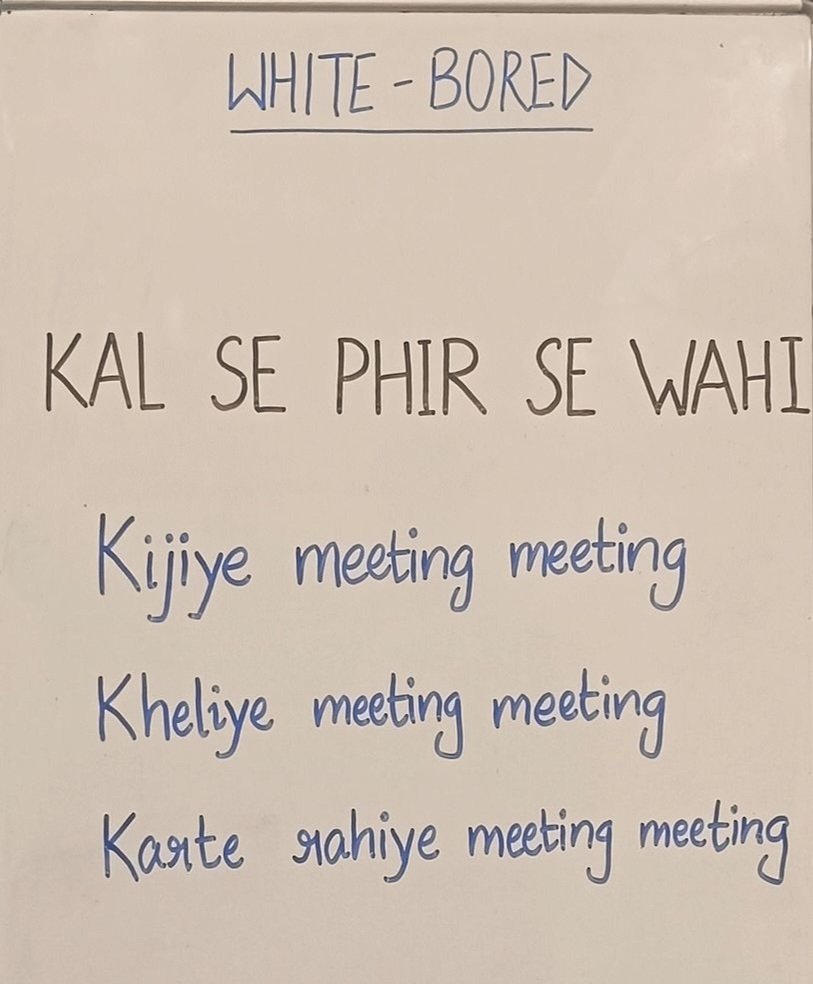 WHITE - BORED
KAL SE PHIR SE WAHI
Kijiye meeting meeting
Kheliye meeting meeting
Karte rahiye meeting meeting